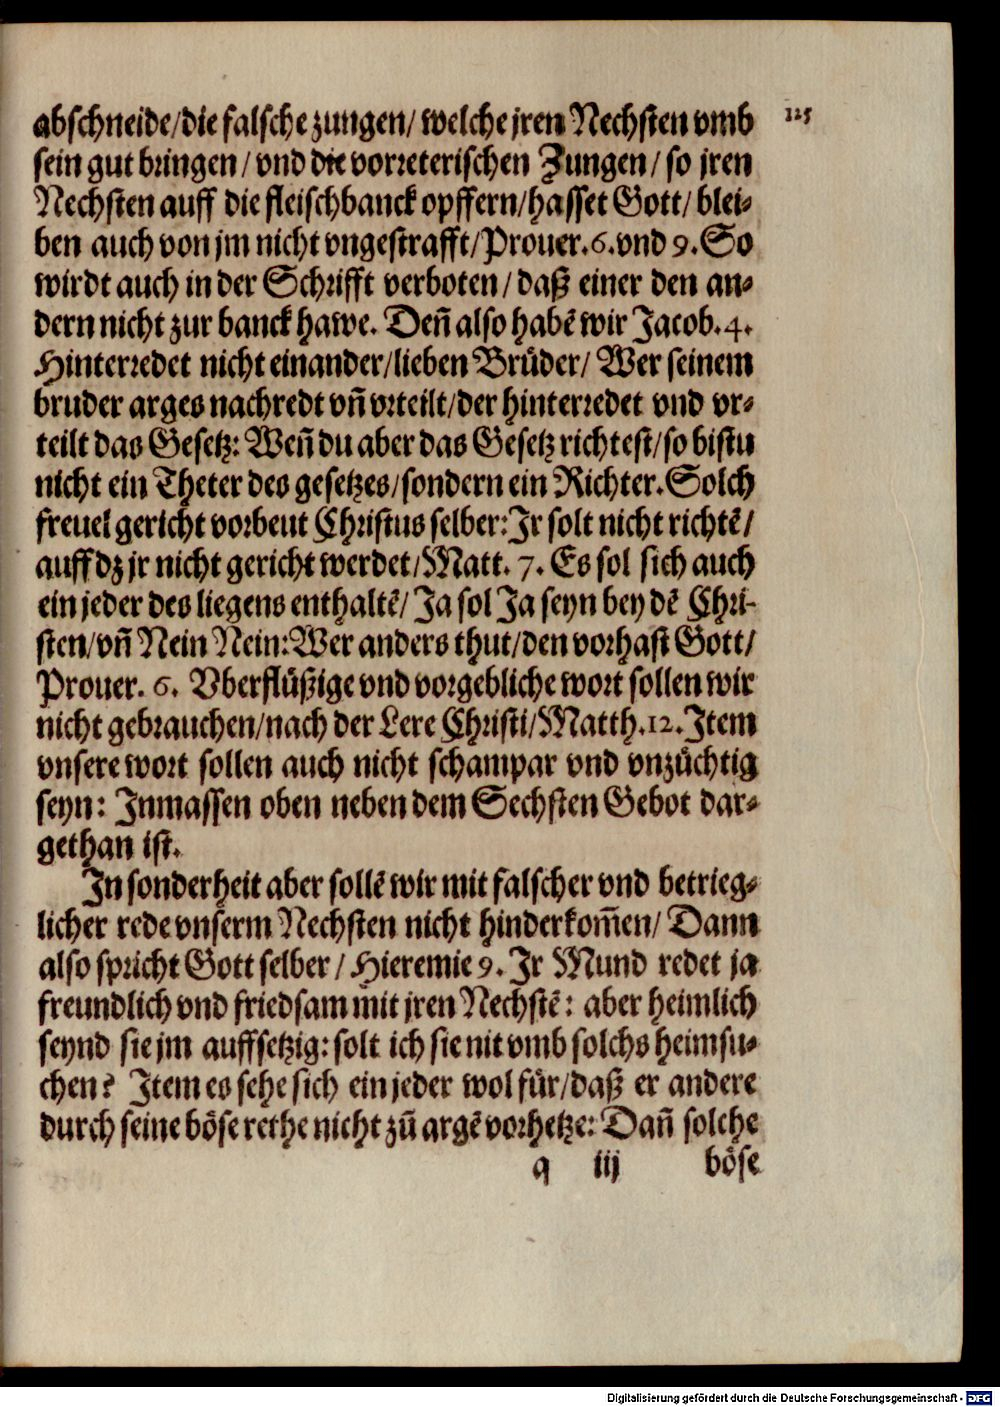 125
abschneide/die falsche zungen/ welche jren Nechsten vmb
sein gut bringen/ vnd die vorreterischen Zungen/ so jren
Nechsten auff die fleischbanck opffern/hasset Gott/ blei-
ben auch von jm nicht vngestrafft/Prouer.6.vnd 9.So
wirdt auch in der Schrifft verboten/ daß einer den an-
dern nicht zur banck hawe. Deñ also habē wir Jacob.4.
Hinterredet nicht einander/lieben Brüder/ Wer seinem
bruder arges nachredt vñ vrteilt/der hinterredet vnd vr-
teilt das Gesetz: Weñ du aber das Gesetz richtest/so bistu
nicht ein Theter des gesetzes/sondern ein Richter.Solch
freuel gericht vorbeut Christus selber:Jr solt nicht richtē/
auff dz jr nicht gericht werdet/Matt. 7. Es sol sich auch
ein jeder des liegens enthaltē/ Ja sol Ja seyn bey dē Chri-
sten/vñ Nein Nein:Wer anders thut/den vorhast Gott/
Prouer. 6. Vberflüßige vnd vorgebliche wort sollen wir
nicht gebrauchen/nach der Lere Christi/Matth.12.Item
vnsere wort sollen auch nicht schampar vnd vnzüchtig
seyn: Inmassen oben neben dem Sechsten Gebot dar-
gethan ist.
In sonderheit aber sollē wir mit falscher vnd betrieg-
licher rede vnserm Nechsten nicht hinderkom̃en/ Dann
also spricht Gott selber/ Hieremie 9. Jr Mund redet ja
freundlich vnd friedsam mit jren Nechstē: aber heimlich
seynd sie jm auffsetzig: solt ich sie nit vmb solchs heimsu-
chen? Item es sehe sich ein jeder wol für/daß er andere
durch seine böse rethe nicht zū argē vorhetze: Dañ solche
q iij böse
Digitalisierung gefördert durch die Deutsche Forschungsgemeinschaft - DFG